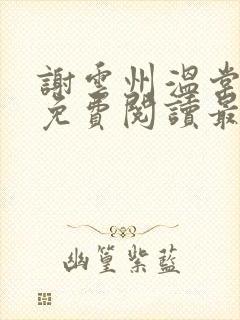 謝雲州溫棠
免費閱讀最
幽篁紫藍